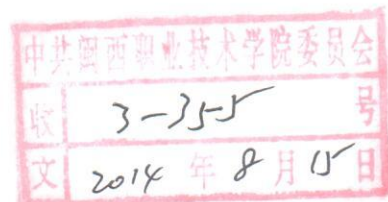 中共闽西职业技术学院委员会
收 3-355 号
文 2014 年 8 月 15 日